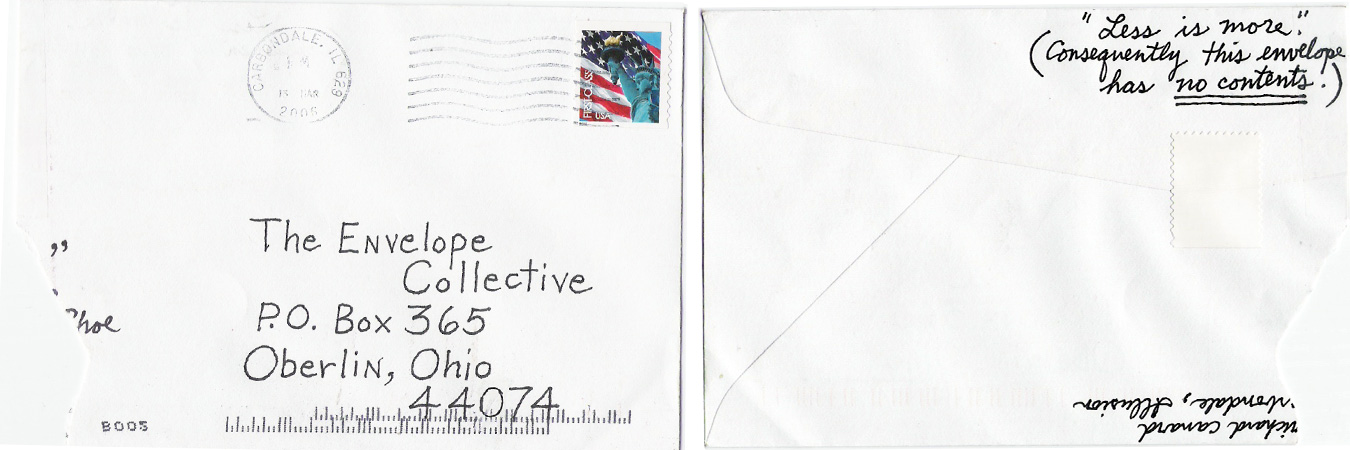 CARBONDALE, IL 629
MAR
2006
FIRST-CLASS
USA
The Envelope
Collective
P.O. Box 365
Oberlin, Ohio
44074
”
hoe
B005
"Less is more."
(Consequently this envelope
has no contents.)
ichard Canard
ondale, Illusion